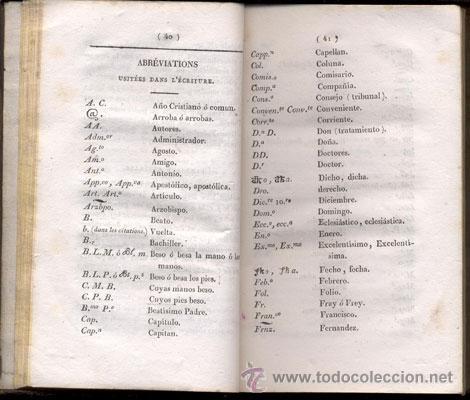 ( 40 )
ABRÉVIATIONS
USITÉES DANS L'ÉCRITURE.
A. C. Año Cristiano ó comun.
@. Arroba ó arrobas.
AA. Autores.
Adm.or Administrador.
Ag.to Agosto.
Am.o Amigo.
Ant.o Antonio.
App.co, App.ca Apostólico, apostólica.
Art. Art.o Artículo.
Arzbpo. Arzobispo.
B. Beato.
b. (dans les citations) Vuelta.
B.r Bachiller.
B. L. M. ó bl. m. Beso ó besa la mano ó las manos.
B. L. P. ó bl. p.s Beso ó besa los pies.
C. M. B. Cuyas manos beso.
C. P. B. Cuyos pies beso.
B.mo P.e Beatísimo Padre.
Cap. Capítulo.
Cap.n Capitan.
( 41 )
Capp.n Capellan.
Col. Coluna.
Comis.o Comisario.
Comp.a Compañia.
Cons.o Consejo (tribunal).
Conven.te Conv.te Conveniente.
Corr.te Corriente.
D.n D. Don (tratamiento).
D.a Doña.
DD. Doctores.
D.r Doctor.
dho, dha. Dicho, dicha.
Dro. derecho.
Dic.re 10.re Diciembre.
Dom.o Domingo.
Ecc.o, ecc.a Eclesiástico, eclesiástica.
En.o Enero.
Ex.mo, Ex.ma Excelentísimo, Excelentísima.
fho, fha. Fecho, fecha.
Feb.o Febrero.
Fol. Folio.
Fr. Fray ó Frey.
Fran.co Francisco.
Frnz. Fernandez.
www.todocoleccion.net